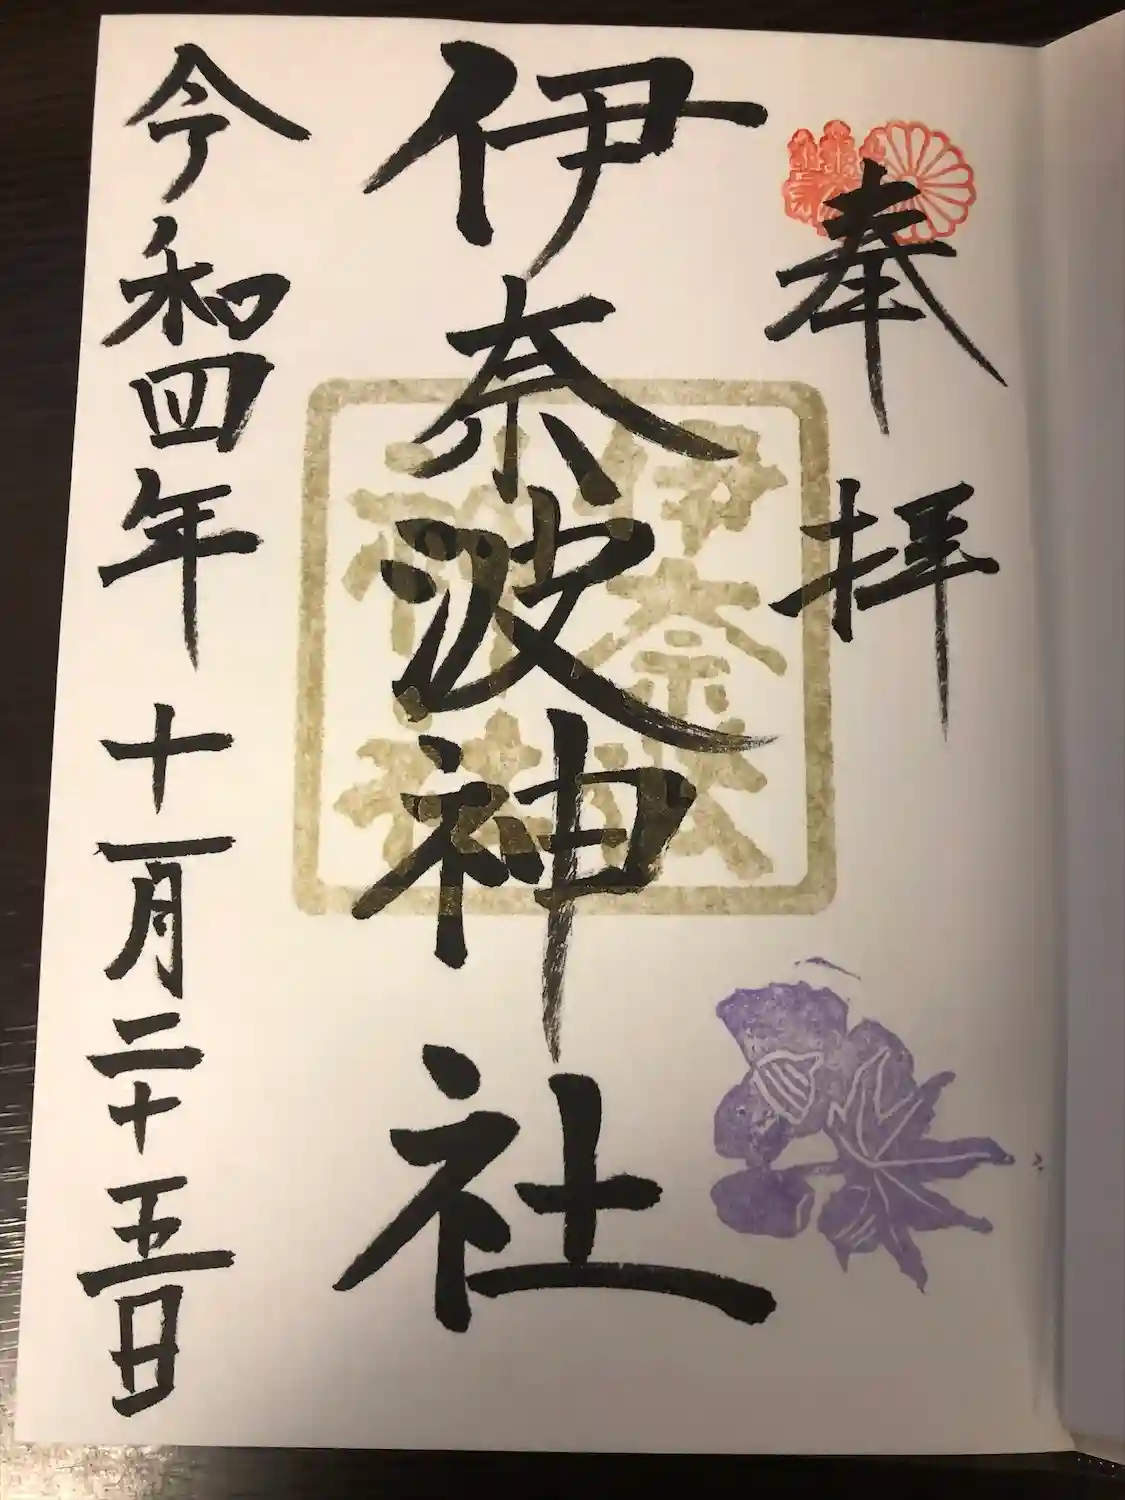 奉拝
伊奈波神社
令和四年十一月二十五日
伊奈波
神社